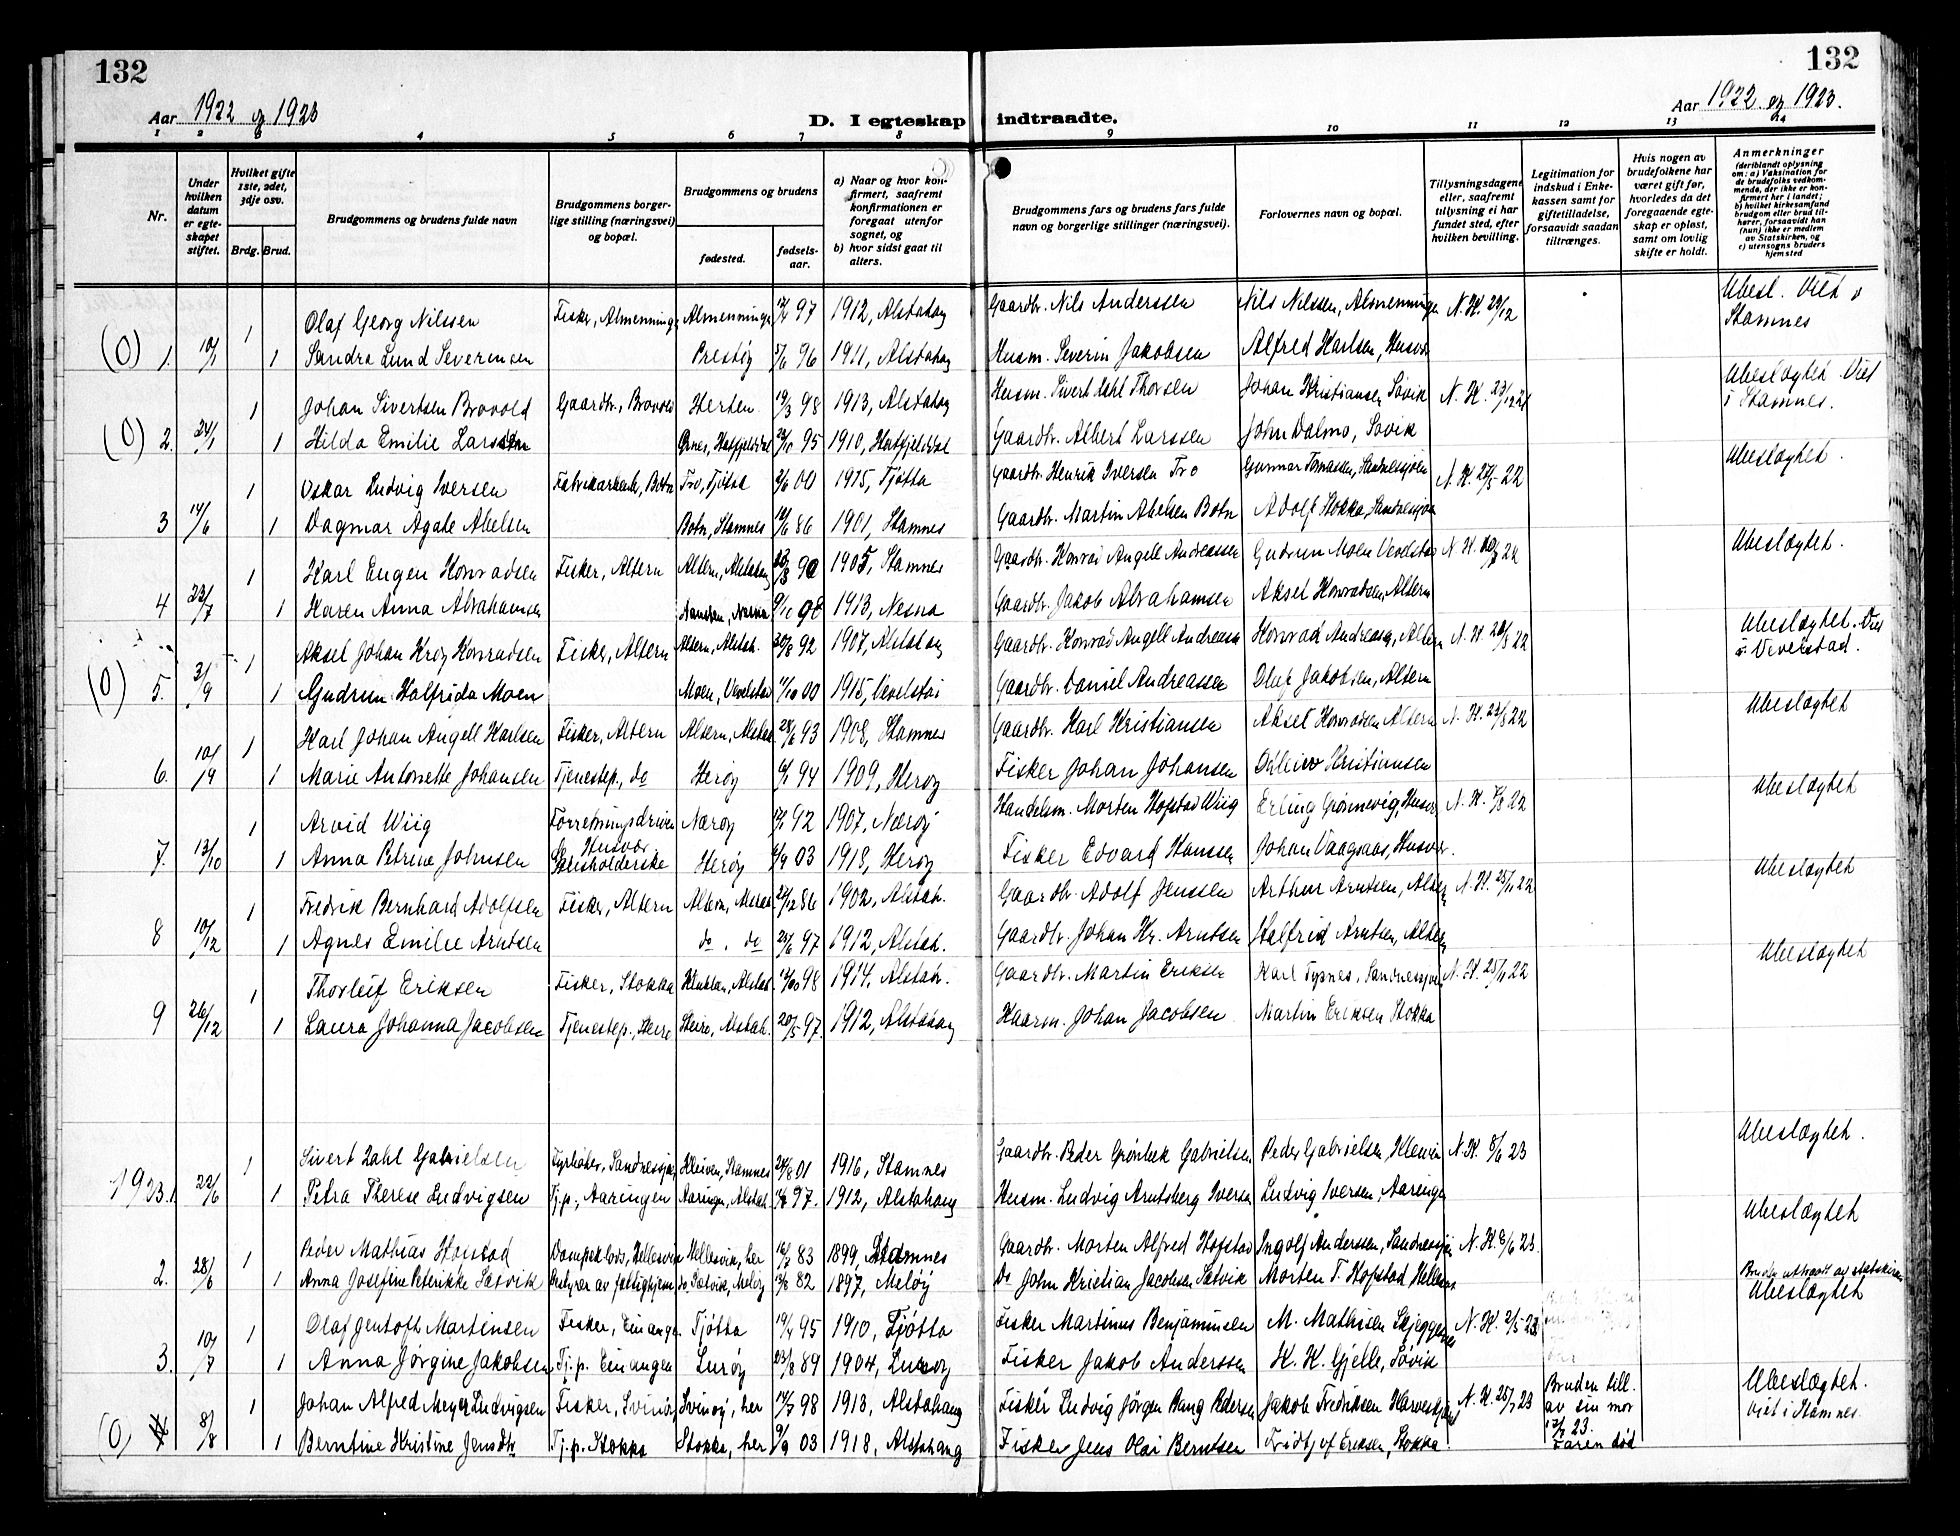 132
132
Aar 1922 og 1923
D. I egteskap indtraadte.
Aar 1922 og 1923.
1 2 3 4 5 6 7 8 9 10 11 12 13 14
Nr.
Under hvilken datum er egteskapet stiftet.
Hvilket gifte 1ste, 2det, 3dje osv.
Brdg. Brud.
Brudgommens og brudens fulde navn
Brudgommens borgerlige stilling (næringsvei) og bopæl.
Brudgommens og brudens
fødested.
fødsels-aar.
a) Naar og hvor konfirmert, saafremt konfirmationen er foregaat utenfor sognet, og
b) hvor sidst gaat til alters.
Brudgommens fars og brudens fars fulde navn og borgerlige stillinger (næringsvei).
Forlovernes navn og bopæl.
Tillysningsdagene eller, saafremt tillysning ei har fundet sted, efter hvilken bevilling.
Legitimation for indskud i Enkekassen samt for giftetilladelse, forsaavidt saadan tiltrænges.
Hvis nogen av brudefolkene har været gift før, hvorledes da det foregaaende egteskap er opløst, samt om lovlig skifte er holdt.
Anmerkninger (deriblandt oplysning om: a) Vaksination for de brudefolks vedkommende, der ikke er konfirmert her i landet; b) hvilket kirkesamfund brudgom eller brud tilhører, forsaavidt han (hun) ikke er medlem av Statskirken, og c) utensogns bruders hjemsted
1 Olaf Georg Nilssen Fisker, Almenninge Almenninge 97 1912, Alstahaug Gaardbr. Nils Anderssen Nils Nilssen, Almenningen N. K. 29/12 Ubesl. Viet i Stamnes
(0) 1. 10/1 1 Sandra Lund Severinsen Prestøy 96 1911, Alstahaug Husm. Severin Jakobsen Alfred Karlsen, Husvær
1 Johan Sivertsen Brovold Gaardbr., Brovold Herten 19/3 98 1913, Alstahaug Husm. Sivert Dahl Thorsen Johan Kristiansen Søvik N. K. Ubeslægtet. Viet i Stamnes.
(0) 2. 24/1 1 Hilda Emilie Larssen Hatfjelddal 95 1910, Hatfjelddal Gaardbr. Albert Larssen John Dalmo, Søvik
1 Oskar Ludvig Iversen Tro, Tjøtta 00 1915, Tjøtta Gaardbr. Henrik Iversen Tro Gunnar Tomassen, Sandnessjøen N. K. 22 Ubeslægtet.
3 14/6 1 Dagmar Agate Abelsen Botn, Stamnes 86 1901, Stamnes Gaardbr. Martin Abelsen Botn Adolf Stokka, Sandnessjøen
1 Karl Eugen Konradsen Fisker, Altern Altern, Alstahaug 90 1905, Stamnes Gaardbr. Konrad Angell Andreassen Gudrun Moen Vevelstad N. K. 22 Ubeslægtet.
4 23/7 1 Karen Anna Abrahamsen 98 1913, Nesna Gaardbr. Jakob Abrahamsen Aksel Konradsen, Altern
1 Aksel Johan Krog Konradsen Fisker, Altern Altern, Alstah. 30/8 92 1907, Alstahaug Gaardbr. Konrad Angell Andreassen Konrad Andreassen, Altern N. K. 22 Ubeslægtet. Viet i Vevelstad.
(0) 5. 3/9 1 Gudrun Halfrida Moen Moen, Vevelstad 11/10 00 1915, Vevelstad Gaardbr. Daniel Andreassen Oluf Jakobsen, Altern
1 Karl Johan Angell Karlsen Fisker, Altern Altern, Alstah. 93 1908, Stamnes Gaardbr. Karl Kristiansen Aksel Konradsen Altern N. K. 22 Ubeslægtet
6. 10/19 1 Marie Antonette Johansen Tjenestep., do Herøy 94 1909, Herøy Fisker Johan Johansen Kristiansen
1 Arvid Wiig Forretningsdriven Husvær Nærøy 92 1907, Nærøy Handelsm. Morten Hofstad Wiig Erling Grønnevig, Husvær N. K. 22 Ubeslægtet
7. 13/10 1 Anna Petrine Johnsen Herøy 03 1918, Herøy Fisker Edvard Hanssen Johan Vaagsaas, Husvær.
1 Fredrik Bernhard Adolfsen Fisker, Altern Altern, Alstah 24/12 86 1902, Alstah. Gaardbr. Adolf Jenssen Arthur Arntsen, Altern N. K. 25/11 22 Ubeslægtet
8 10/12 1 Agnes Emilie Arntsen do. do 97 1912, Alstah. Gaardbr. Johan Kr. Arntsen Halfrid Arntsen, Altern
1 Thorleif Eriksen Fisker, Stokka Alstah 98 1914, Alstah. Gaardbr. Martin Eriksen Karl Typnes, Sandnessjøen N. K. 25/11 22 Ubeslægtet
9 26/12 1 Laura Johanna Jacobsen Tjenestep., Herre Alstah. 20/5 97. 1912, Alstahaug Johan Jacobsen Martin Eriksen Stokka
1 Sivert Dahl Gabrielsen Fyrbøter, Sandnessjøen Kleiven, Stamnes 24/8 01 1916, Stamnes Gaardbr. Peder Grønbek Gabrielsen Peder Gabrielsen, Kleiven N. K. 8/6 23 Ubeslægtet.
1923. 1. 22/6 1 Petra Therese Ludvigsen Tj.p., Aaringen Aaringen, Alstah. 97. 1912, Alstahaug Husm. Ludvig Arntsberg Iversen Ludvig Iversen, Aaringen
1 Peder Mathias Hofstad Hellesvik, her 83 1899, Stamnes Gaardbr. Morten Alfred Hofstad Ingolf Anderssen, Sandnessjøen N. K. 8/6 23. Ubeslægtet
2. 28/6 1 Anna Josefine Peterikke Satvik Bestyrer av fattighjem Satvik, Meløy 82 1897, Meløy Do John Kristian Jacobsen Satvik Morten T. Hofstad Bruden uttraadt av statskirken
1 Olaf Gentoft Martinsen Fisker, Einangen Tjøtta 19/4 95 1910, Tjøtta Fisker Martinus Benjaminsen M. Mathisen Skjeggesnes N. K. 2/5 23. Ubeslægtet
3. 10/7 1 Anna Jørgine Jakobsen Tj.p. Einangen Lurøy 23/8 89 1904, Lurøy Fisker Jakob Anderssen K. K. Gjelle, Søvik
1 Johan Alfred Meyer Ludvigsen Fisker, Svinøy Svinøy, her 14/7 98 1913, Alstahaug Fisker Ludvig Jørgen Pedersen Jakob Fredriksen N. K. 25/7 23 Bruden till. av sin mor 23. Faren død Ubeslægtet. Viet i Stamnes.
(0) 8/8 1 Berntine Kristine Jensdtr Tj.p. Stokka Stokka, her 9/9 03 1918, Alstahaug Fisker Jens Olai Berntsen Fridtjof Eriksen, Stokka